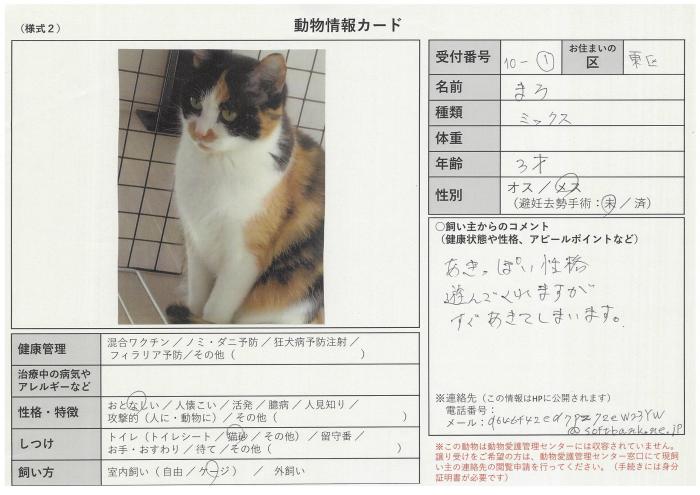 （様式２）
動物情報カード
受付番号 10-① お住まいの区 東区
名前 まろ
種類 ミックス
体重
年齢 3才
性別 オス／メス
（避妊去勢手術：未／済）
○飼い主からのコメント
（健康状態や性格、アピールポイントなど）
あきっぽい性格
遊んでくれますが
すぐあきてしまいます。
※連絡先（この情報はHPに公開されます）
電話番号：
メール：
@softbank.ne.jp
※この動物は動物愛護管理センターには収容されていません。
譲り受けをご希望の方は、動物愛護管理センター窓口にて現飼
い主の連絡先の閲覧申請を行ってください。（手続きには身分
証明書が必要です）
健康管理 混合ワクチン／ノミ・ダニ予防／狂犬病予防注射／
フィラリア予防／その他（ ）
治療中の病気や
アレルギーなど
性格・特徴 おとなしい／人懐こい／活発／臆病／人見知り／
攻撃的（人に・動物に）／その他（ ）
しつけ トイレ（トイレシート／猫砂／その他）／留守番／
お手・おすわり／待て／その他（ ）
飼い方 室内飼い（自由／ケージ） ／ 外飼い